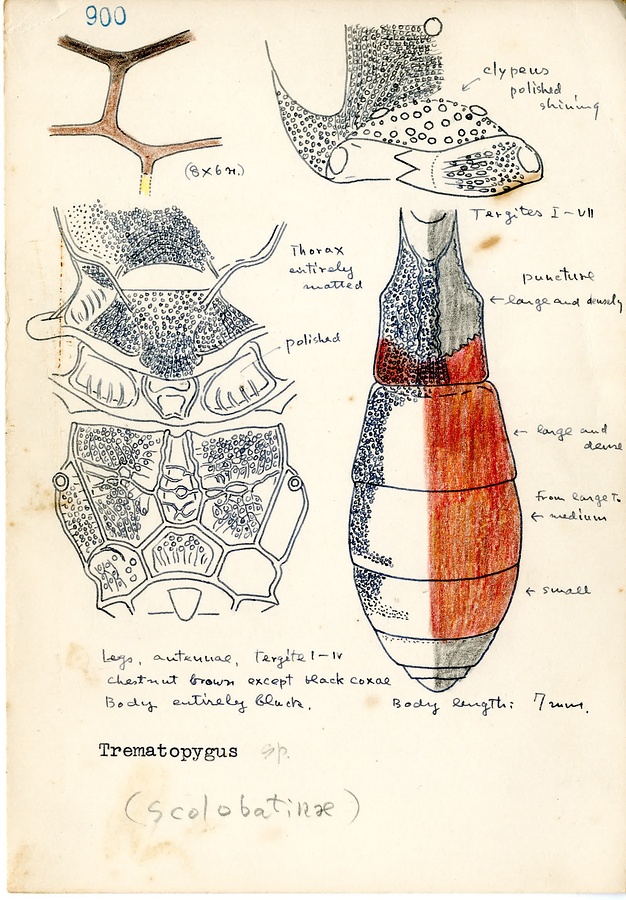 900
clypeus
polished
shining
(8×6 n.)
Tergites I-VII
Thorax
entirely
matted
puncture
← large and densely
polished
← large and
dense
from large to
← medium
← small
Legs, antennae, Tergite I-IV
chestnut brown except black coxae
Body entirely black.
Body length: 7 mm.
Trematopygus sp.
(Scolobatinae)